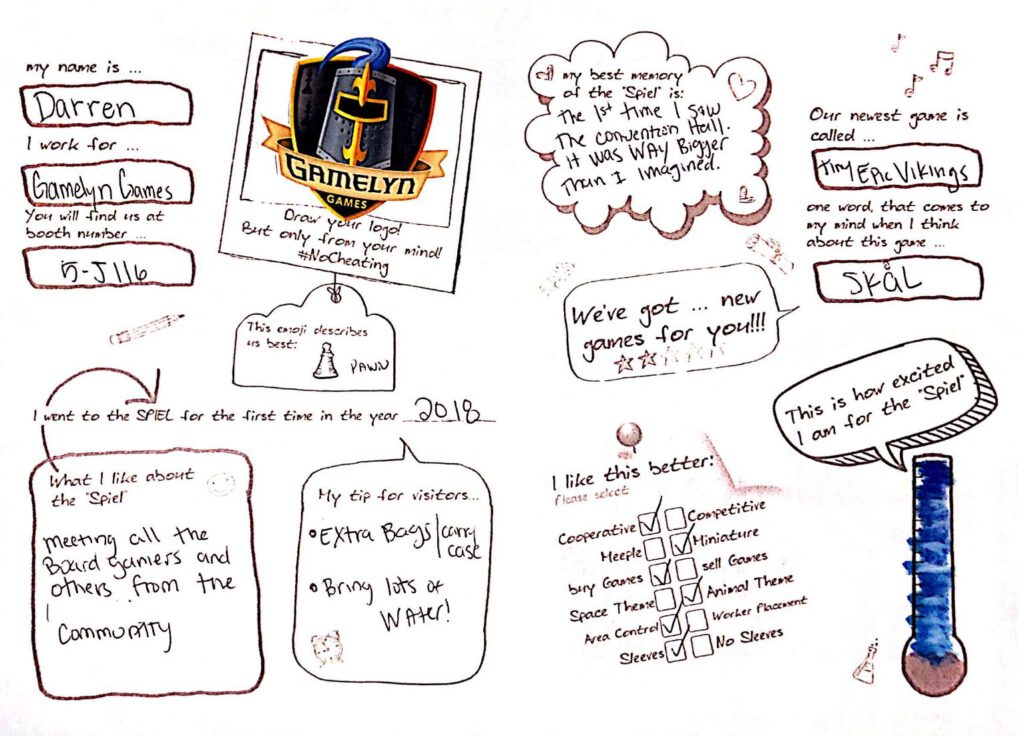 my name is ...
Darren
I work for ...
Gamelyn Games
You will find us at
booth number ...
5-J116
GAMELYN
GAMES
Draw your logo!
But only from your mind!
#NoCheating
This emoji describes
us best:
PAWN
my best memory
of the "Spiel" is:
The 1st time I saw
The convention Hall.
it was WAY Bigger
Than I Imagined.
Our newest game is
called ...
Tiny Epic Vikings
one word, that comes to
my mind when I think
about this game ...
SKåL
We've got ... new
games for you!!!
I went to the SPIEL for the first time in the year 2018
What I like about
the "Spiel"
meeting all the
Board gamers and
others from the
Community
My tip for visitors...
• Extra Bags/carry
case
• Bring lots of
Water!
I like this better:
Please select
Cooperative Competitive
Meeple Miniature
buy Games sell Games
Space Theme Animal Theme
Area Control Worker Placement
Sleeves No Sleeves
This is how excited
I am for the "Spiel"